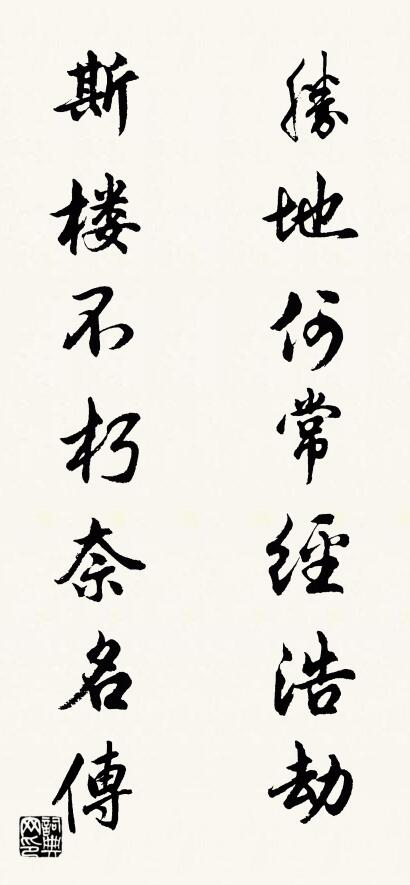 勝地何常經浩劫
斯楼不朽奈名傳
詞典网印